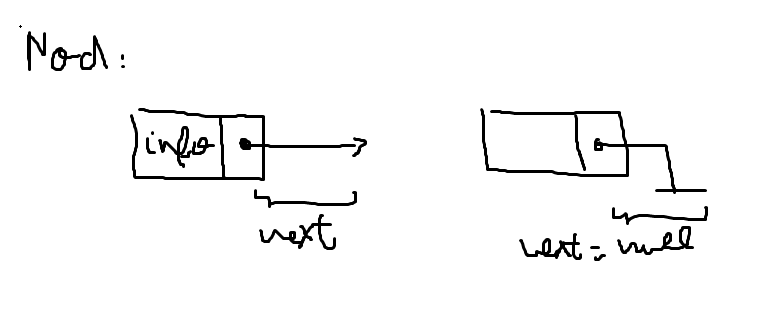 Nod:
info
next
next = null